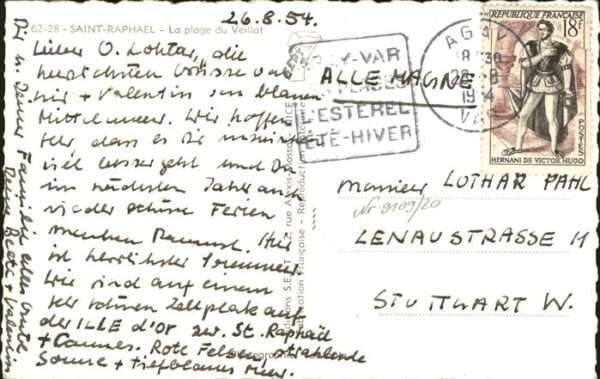 26.8.54.
62-28 - SAINT-RAPHAEL - La plage du Veillat
Lieber O. Lothar, die
herzlichsten Grüsse von
mir + Valentin am blauen
Mittelmeer. Wir hoffen
sehr, dass es Dir
viel besser geht und Du
im nächsten Jahr auch
wieder schöne Ferien
machen kannst. Hier
ist herrlichster Sommer.
Wir sind auf einem
sehr schönen Zeltplatz auf
der ILE d'OR zw. St. Raphaël
+ Cannes. Rote Felsen, strahlende
Sonne + tiefblaues Meer.
Dir u. Deiner Familie alles Gute
Deine Beate + Valentin
AGAY-VAR
L'ESTEREL
ÉTÉ-HIVER
ALLEMAGNE
AGAY
VAR
RÉPUBLIQUE FRANÇAISE
18F
POSTES
HERNANI DE VICTOR HUGO
Monsieur LOTHAR PAHL
Nr 9109/20
LENAUSTRASSE 11
STUTTGART W.